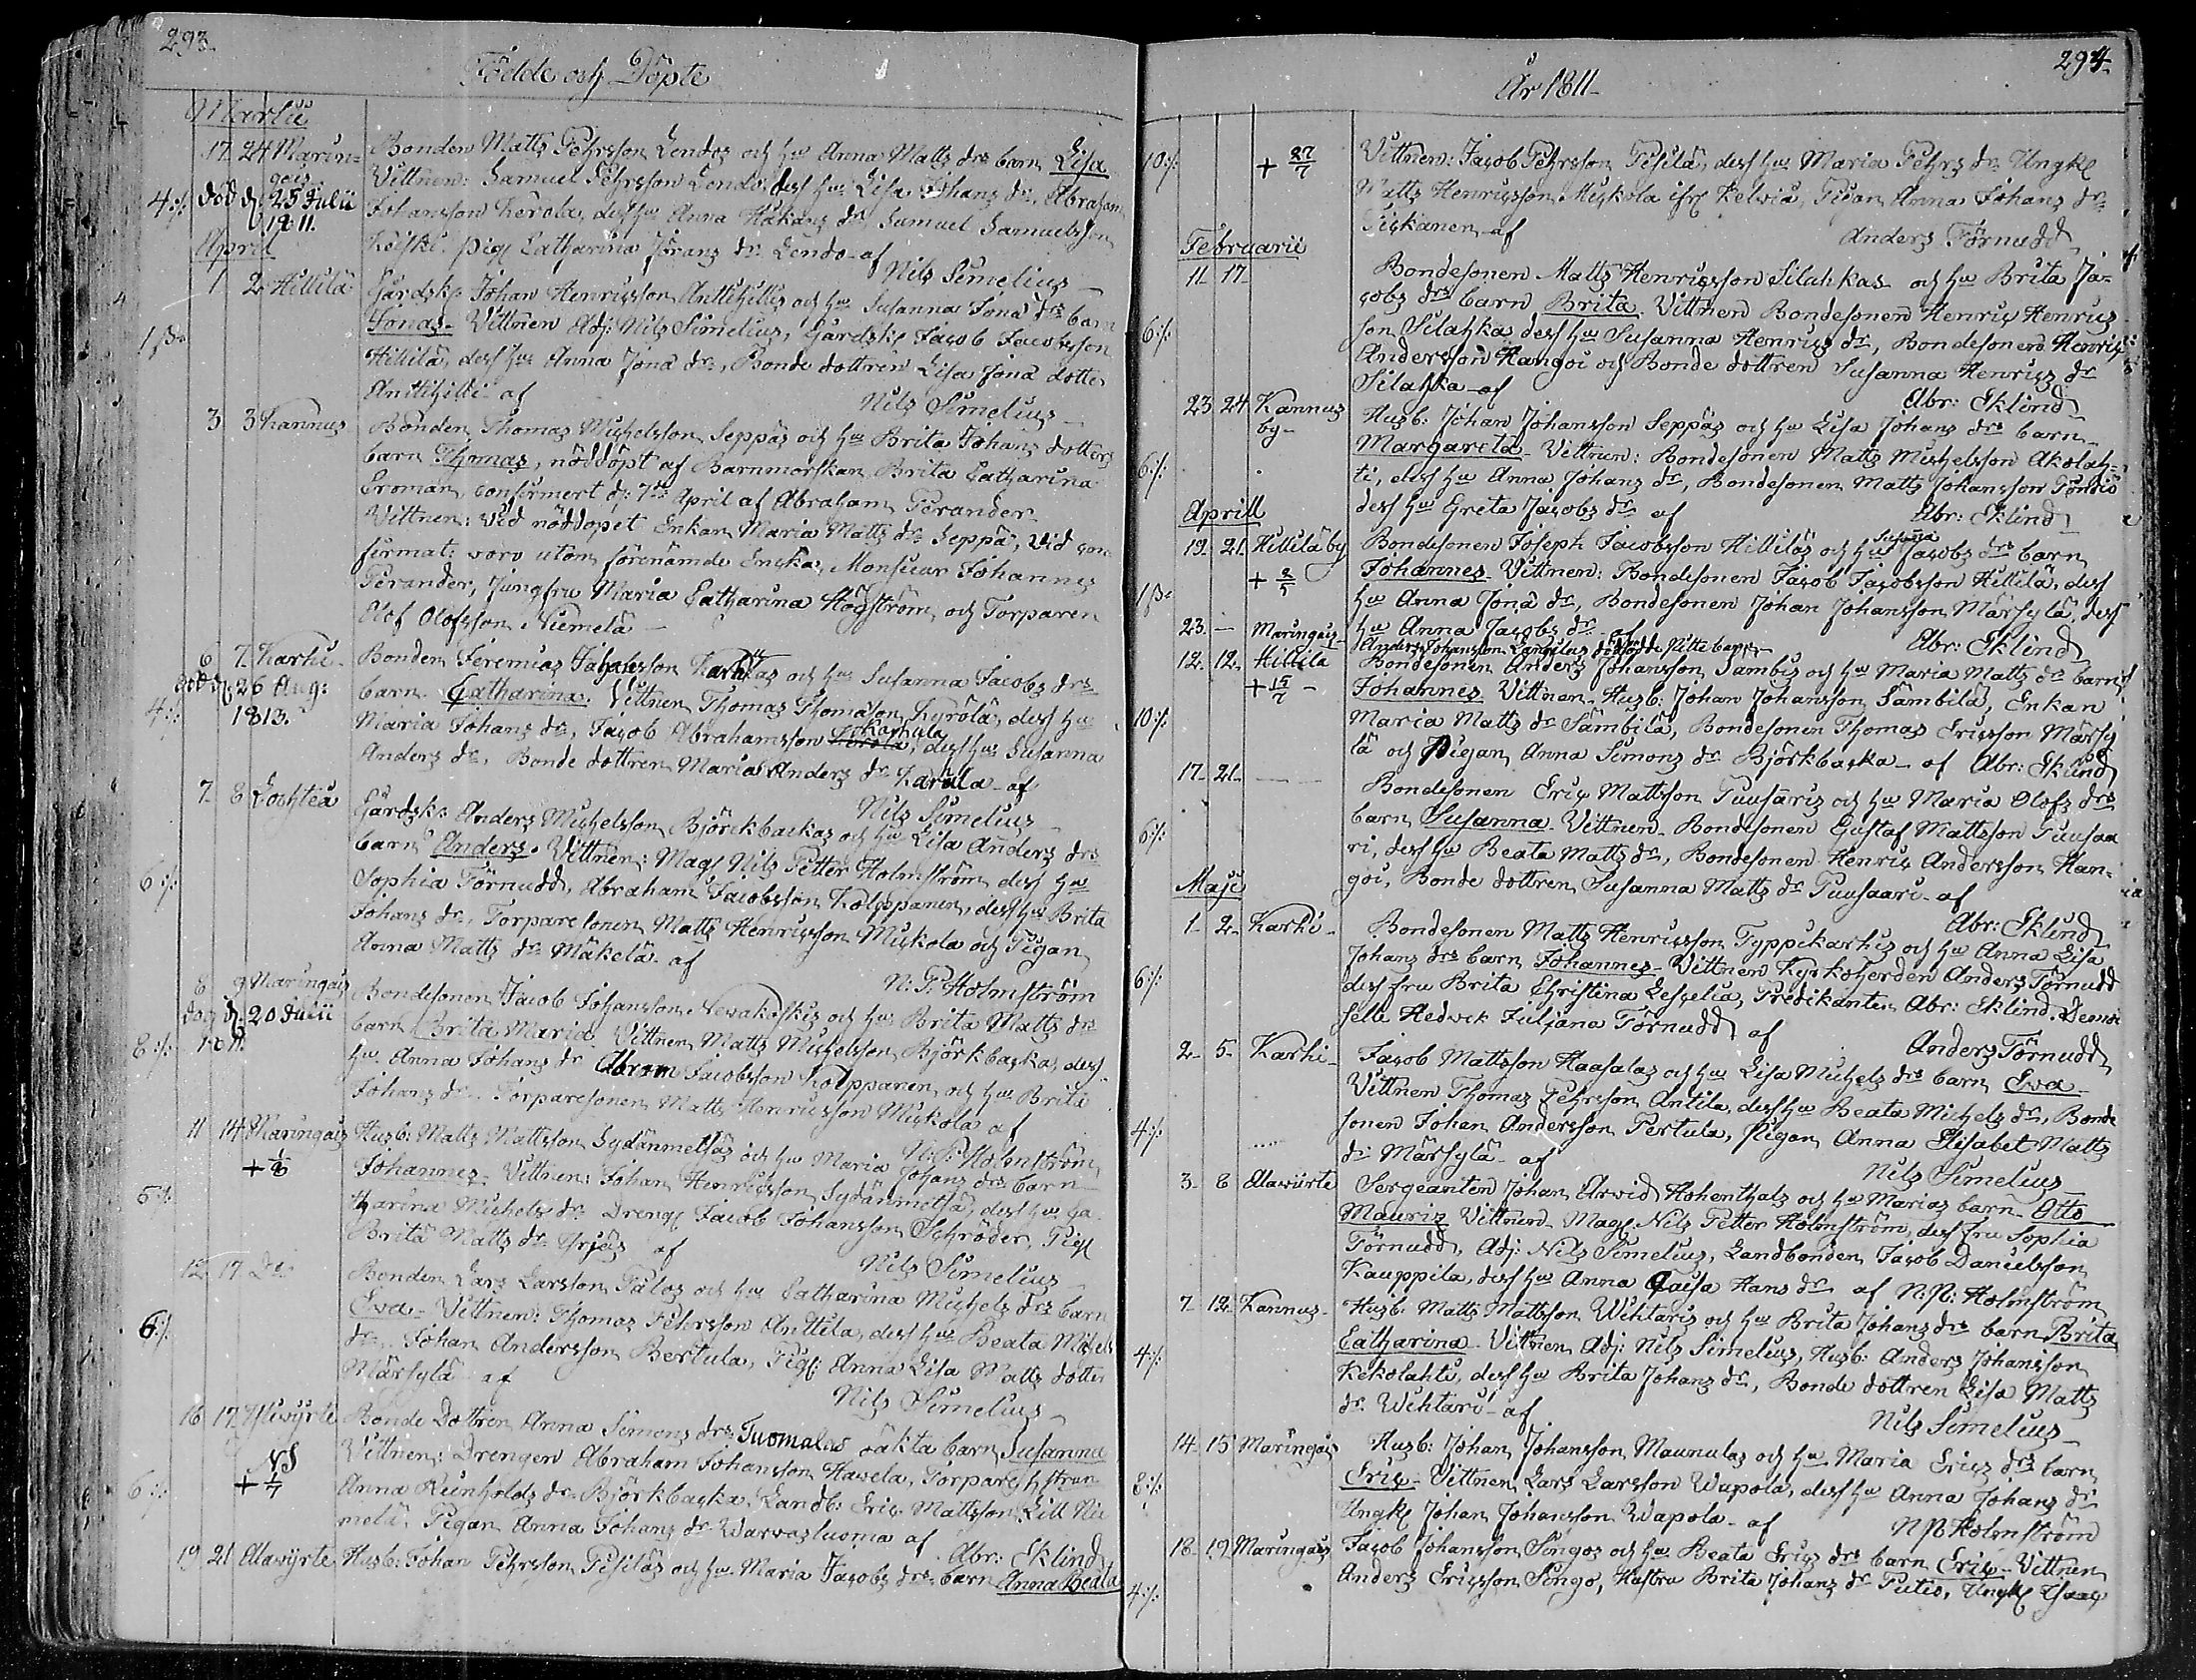 293.
Födde och Döpte
Martii
17. 24 Marin=gais Bonden Matts Pehrsson Lendos och hu Anna Matts drs barn Lisa
Vittnen: Samuel Pehrsson Lendo, dess hu Lisa Johans dr, Abraham
4:/: död d. 25 Julii 1811. Johansson Kerola, dess hu Anna Håkans dr, Samuel Samuelsson
pig Catharina Jörans dr Lendo af
Nils Simelius
April
1 2 Hillilä Gårdsk. Johan Henricsson Anttihillis och hu Susanna Jona drs barn
Jonas. Vittnen Adj: Nils Simelius, Gårdsk Jacob Jacobsson
Hillilä, dess hu Anna Jona dr, Bonde dottren Lisa Jona dotter
Anttihilli af
Nils Simelius
3 3 Kannus Bonden Thomas Michelsson Seppäs och hu Brita Johans dotters
barn Thomas, nöddöpt af Barnmorskan Brita Catharina
Eroman, confirmert d: 7de April af Abraham Perander.
Vittnen: Vid nöddopet Enkan Maria Matts dr Seppä, Vid con
firmat: woro utom förenämde Enska, Monsieur Johannes
Perander, Jungfru Maria Catharina Högström och Torparen
Olof Olofsson Niemelä
6 7. Karhi Bonden Jeremias Johansson Karhulas och hu Susanna Jacobs drs
död d. 26 Aug: 1813. barn Catharina. Vittnen Thomas Thomasson Lyrölä, dess hu
4:/: Maria Johans dr, Jacob Abrahamsson Karhula, dess hu Susanna
Anders dr. Bonde dottren Maria Anders dr Karula af
Nils Simelius
7 8 Lochteå Gårdsk: Anders Michelsson Björckbackas och hu Lisa Anders drs
barn Anders. Vittnen: Mag Nils Petter Holmström dess hu
6:/: Sophia Törnudd, Abraham Jacobsson Kolppanen, dess hu Brita
Johans dr, Torparesonen Matts Henricsson Mickola och Pigan
Anna Matts dr Mäkelä af
N:P: Holmström
8 9 Maringais Bondesonen Jacob Johansson Newakoskis och hu Brita Matts drs
dog d. 20 Julii barn Brita Maria. Vittnen Matts Michelsson Björkbacka, dess
8:/: hu Anna Johans dr Abram Jacobsson Kolpparen, och hu Brita
Johans dr. Torparesonen Matts Henricsson Mickola af
N:P: Holmström
11 14 Maringais Husb: Matts Mattsson Sydänmetsäs och hu Maria Johans drs barn
Johannes. Vittnen: Johan Henricsson Sydänmetsä, dess hu Ca
5:/: tharina Michels dr Dreng Jacob Johansson Schröder, Pig
Brita Matts dr Yrjäs af
Nils Simelius
15 17 Do Bonden Lars Larsson Palos och hu Catharina Michels drs barn
Ewa. Vittnen: Thomas Pehrsson Anttila, dess hu Beata Michels
6:/: dr. Johan Andersson Bertula, Pig: Anna Lisa Matts dotter
Märsylä af
Nils Simelius
16 17 Alawiyrte Bonde Dottren Anna Simons drs Tuomalas oäkta barn Susanna
NS Vittnen: Drengen Abraham Johansson Hawela, Torpare hstrun
6:/: Anna Reinholds dr Björkbacka. Landb: Eric Mattsson Lill Nie
melä, Pigan Anna Johans dr Warwasluoma af
Abr: Eklind
19 21 Alawyrte Husb: Johan Pehrsson Pesiläs och hu Maria Jacobs drs barn Anna Beata
År 1811
294.
10:/: + 27/7 Vittnen: Jacob Pehrsson Pesilä, dess hu Maria Pehrs dr Ungk
Matts Henricsson Mickola ifr Kelviå, Pigan Anna Johans dr
Piskanen af
Anders Törnudd
Februarii
11. 17. Bondesonen Matts Henricsson Silahkas och hu Brita Ja=
cobs drs barn Brita Vittnen Bondesonen Henric Henrics
6:/: son Silahka dess hu Susanna Henrics dr, Bondesonen Henric
Andersson Hangoi och Bonde dottren Susanna Henrics dr
Silahka af
Abr: Eklind
23 24 Kannus by Husb: Johan Johansson Seppäs och hu Lisa Johans drs barn
Margareta. Vittnen: Bondesonen Matts Michelsson Akolah=
6:/: ti, dess hu Anna Johans dr, Bondesonen Matts Johansson Pondis
dess hu Greta Jacobs dr af
Abr: Eklind
Aprill
19. 21. Hilliläby Bondesonen Joseph Jacobsson Hilliläs och hu Susanna Jacobs drs barn
Johannes. Vittnen: Bondesonen Jacob Jacobsson Hillilä, dess
hu Anna Jona dr, Bondesonen Johan Johansson Märsylä, dess
hu Anna Jacobs dr af
Abr: Eklind
23. — Maringais Anders Johansson dödfödde barn
12. 12. Hillilä Bondesonen Anders Johansson Sambis och hu Maria Matts dr barn
+ 15/7 Johannes. Vittnen Husb: Johan Johansson Sämbilä, Enkan
10:/: Maria Matts dr Sämbilä, Bondesonen Thomas Ericsson Märsy
lä och Pigan Anna Simons dr Björkbacka af Abr: Eklind
17. 21. Bondesonen Eric Mattsson Puusaris och hu Maria Olofs drs
6:/: barn Susanna. Vittnen Bondesonen Gustaf Mattsson Puusaa
ri, dess hu Beata Matts dr, Bondesonen Henric Andersson Han=
goi, Bonde dottren Susanna Matts dr Puusaari af
Abr: Eklind
Maji
1. 2. Karhi Bondesonen Matts Henricsson Typpikarhis och hu Anna Lisa
Johans drs barn Johannes. Vittnen Kyrkoherden Anders Törnudd
6:/: dess fru Brita Christina Lescelia, Predikanten Abr: Eklind. Demoi
selle Hedvik Juljana Törnudd af
Anders Törnudd
2. 5. Karhi Jacob Mattsson Haasalas och hu Lisa Michels drs barn Ewa
Vittnen Thomas Pehrsson Antila, dess hu Beata Michels dr, Bonde
4:/: sonen Johan Andersson Pertula, Pigan Anna Elisabet Matts
dr Märsylä af
Nils Simelius
3. 6 Alawiirte Sergeanten Johan Arwid Hohenthals och hu Marias barn Otto
Mauriz Vittnen Mag Nils Petter Holmström, dess fru Sophia
Törnudd, Adj: Nils Simelius, Landbonden Jacob Danielsson
Kauppila, dess hu Anna Caisa Hans dr af N:P: Holmström
7. 12. Kannus Husb: Matts Mattsson Wihtaris och hu Brita Johans drs barn Brita
Catharina. Vittnen Adj: Nils Simelius, Husb: Anders Johansson
4:/: Kekolahti, dess hu Brita Johans dr, Bonde dottren Lisa Matts
dr Wihtari af
Nils Simelius
14. 15 Maringais Husb: Johan Johansson Maunulas och hu Maria Erics drs barn
8:/: Eric. Vittnen Lars Larsson Wapola, dess hu Anna Johans dr
Ungk Johan Johansson Wapola af
N P Holmström
18. 19. Maringais Jacob Johansson Singos och hu Beata Erics drs barn Eric. Vittnen
4:/: Anders Ericsson Singo, Hustru Brita Johans dr Pietis, Ungk